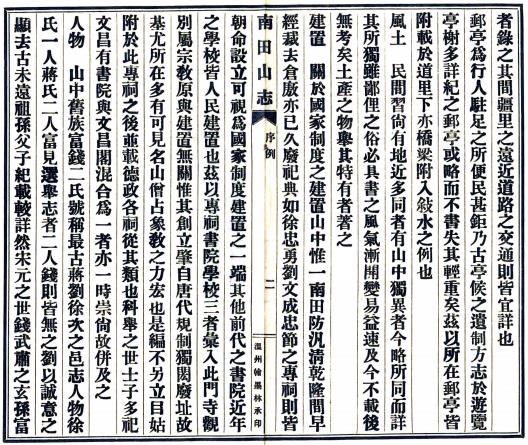 者錄之其間疆里之遠近道路之交通則皆宜詳也
郵亭爲行人駐足之所便民甚鉅乃古亭候之遺制方志於遊覽
亭榭多詳紀之郵亭或略而不書失其輕重矣茲以所在郵亭皆
附載於道里下亦橋梁附入敍水之例也
風土　民間習尙有地近多同者有山中獨異者今略所同而詳
其所獨雖鄙俚之俗必具書之風氣漸開變易益速及今不載後
無考矣土產之物舉其特有者著之
建置　關於國家制度之建置山中惟一南田防汛清乾隆間早
經裁去倉廒亦已久廢祀典如徐忠勇劉文成忠節之專祠則皆
南田山志
序例
二
溫州翰墨林承印
朝命設立可視爲國家制度建置之一端其他前代之書院近年
之學校皆人民建置也茲以專祠書院學校三者彙入此門寺觀
別屬宗教原與建置無關惟其創立肇自唐代規制獨閎廢址故
基尤所在多有可見名山僧占象教之力宏也是編不另立目姑
附於此專祠之後並載德政各祠從其類也科舉之世士子多祀
文昌有書院與文昌閣混合爲一者亦一時崇尙故併及之
人物　山中舊族富錢二氏號稱最古蔣劉徐次之邑志人物徐
氏一人蔣氏二人富見選舉志者二人錢則皆無之劉以誠意之
顯去古未遠祖孫父子紀載較詳然宋元之世錢武肅之玄孫富